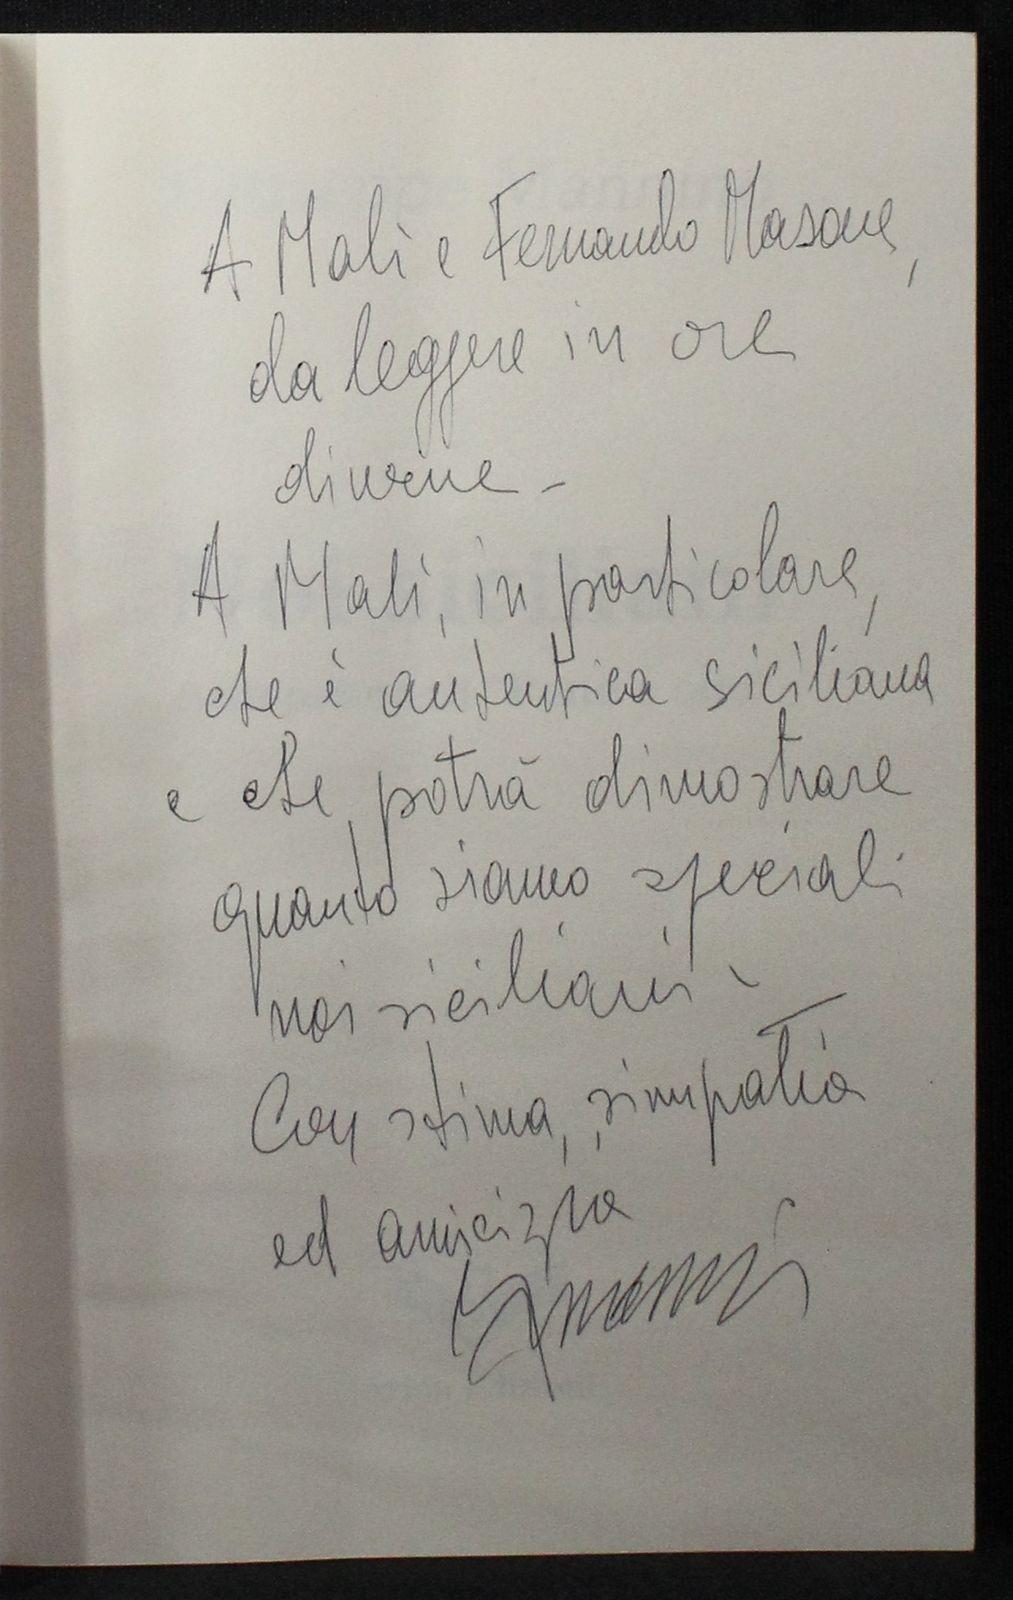 A Mali e Fernando Masone,
da leggere in ore
diurne -
A Mali, in particolare,
che è autentica siciliana
e che potrà dimostrare
quanto siamo speciali
noi siciliani -
Con stima, simpatia
ed amicizia